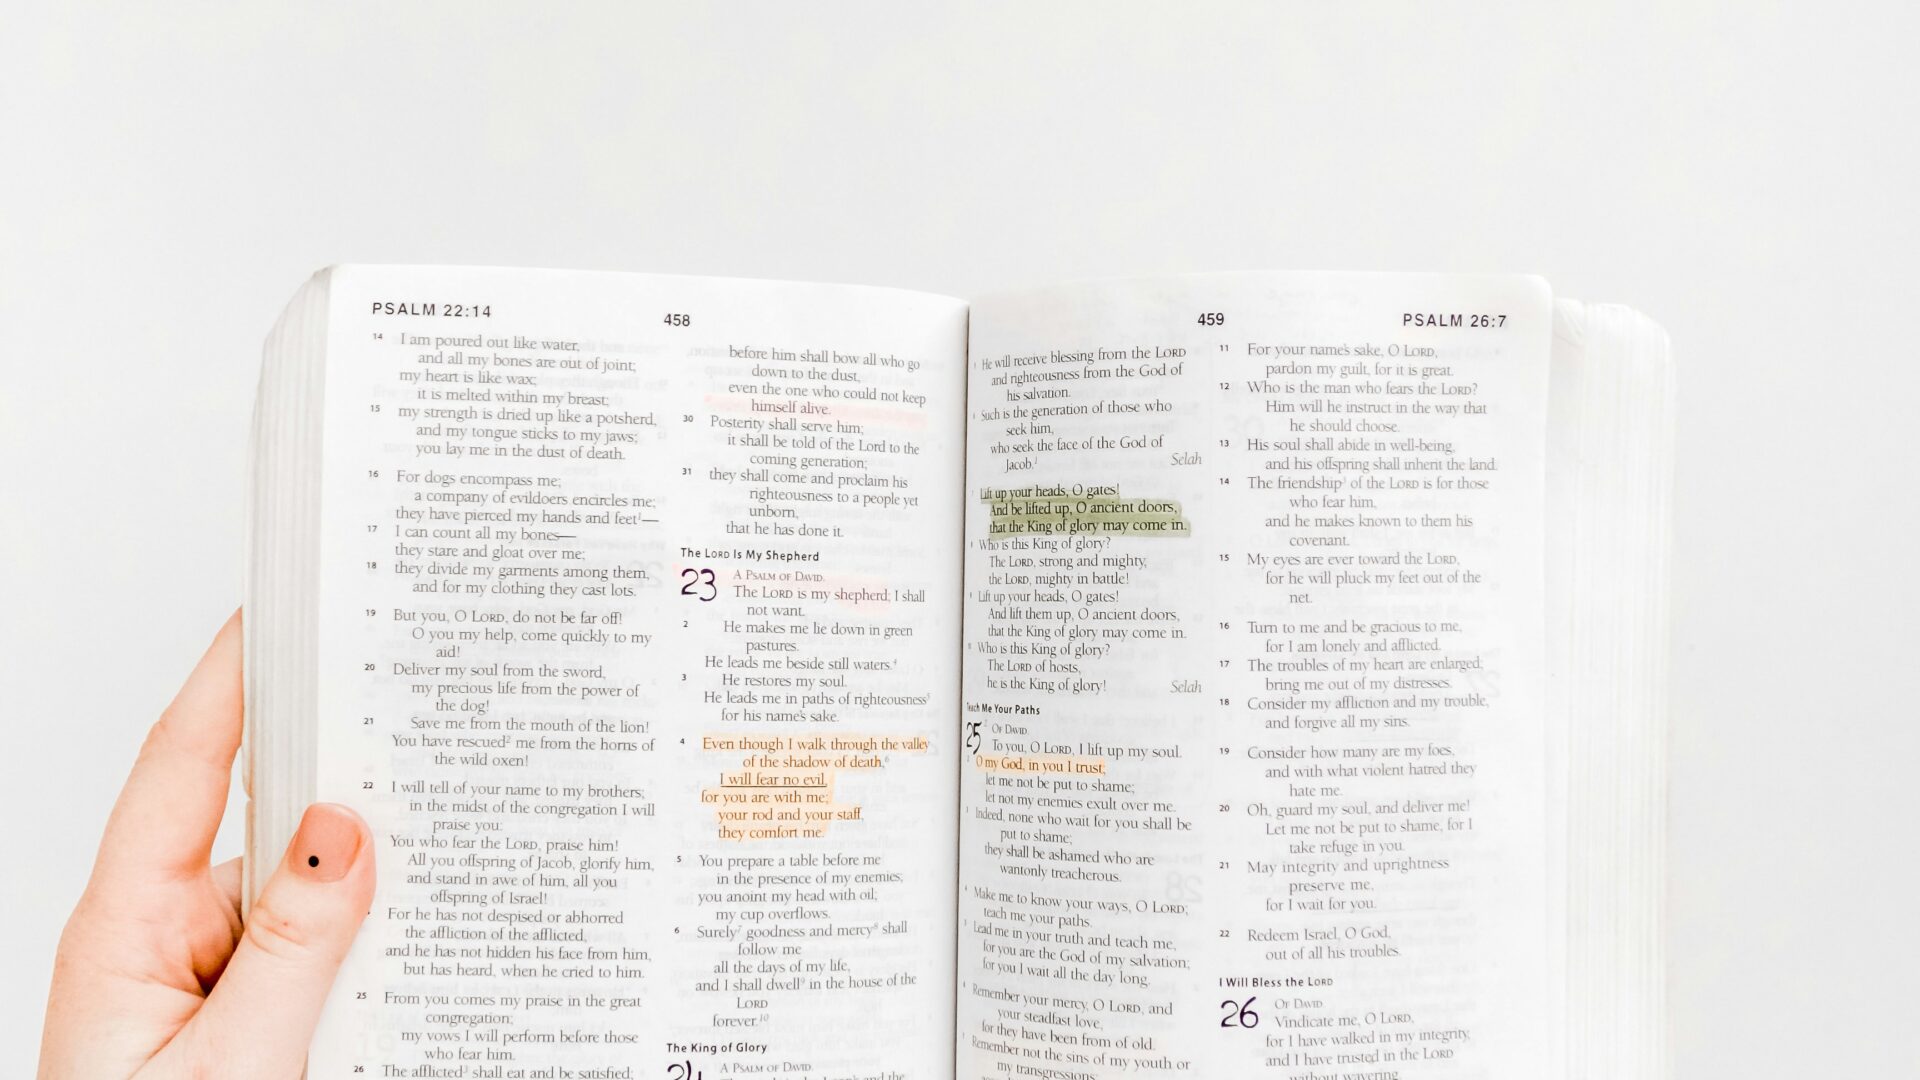 PSALM 22:14
458
14 I am poured out like water,
and all my bones are out of joint;
my heart is like wax;
it is melted within my breast;
15 my strength is dried up like a potsherd,
and my tongue sticks to my jaws;
you lay me in the dust of death.
16 For dogs encompass me;
a company of evildoers encircles me;
they have pierced my hands and feet¹—
17 I can count all my bones—
they stare and gloat over me;
18 they divide my garments among them,
and for my clothing they cast lots.
19 But you, O LORD, do not be far off!
O you my help, come quickly to my
aid!
20 Deliver my soul from the sword,
my precious life from the power of
the dog!
21 Save me from the mouth of the lion!
You have rescued² me from the horns of
the wild oxen!
22 I will tell of your name to my brothers;
in the midst of the congregation I will
praise you:
You who fear the LORD, praise him!
All you offspring of Jacob, glorify him,
and stand in awe of him, all you
offspring of Israel!
For he has not despised or abhorred
the affliction of the afflicted,
and he has not hidden his face from him,
but has heard, when he cried to him.
25 From you comes my praise in the great
congregation;
my vows I will perform before those
who fear him.
26 The afflicted³ shall eat and be satisfied;
before him shall bow all who go
down to the dust,
even the one who could not keep
himself alive.
30 Posterity shall serve him;
it shall be told of the Lord to the
coming generation;
31 they shall come and proclaim his
righteousness to a people yet
unborn,
that he has done it.
The LORD Is My Shepherd
23 A PSALM OF DAVID.
The LORD is my shepherd; I shall
not want.
2 He makes me lie down in green
pastures.
He leads me beside still waters.⁴
3 He restores my soul.
He leads me in paths of righteousness⁵
for his name's sake.
4 Even though I walk through the valley
of the shadow of death,⁶
I will fear no evil,
for you are with me;
your rod and your staff,
they comfort me.
5 You prepare a table before me
in the presence of my enemies;
you anoint my head with oil;
my cup overflows.
6 Surely⁷ goodness and mercy⁸ shall
follow me
all the days of my life,
and I shall dwell⁹ in the house of the
LORD
forever.¹⁰
The King of Glory
24 A PSALM OF DAVID.
and the
459
PSALM 26:7
He will receive blessing from the LORD
and righteousness from the God of
his salvation.
Such is the generation of those who
seek him,
who seek the face of the God of
Jacob.¹
Selah
Lift up your heads, O gates!
And be lifted up, O ancient doors,
that the King of glory may come in.
Who is this King of glory?
The LORD, strong and mighty,
the LORD, mighty in battle!
Lift up your heads, O gates!
And lift them up, O ancient doors,
that the King of glory may come in.
Who is this King of glory?
The LORD of hosts,
he is the King of glory!
Selah
Teach Me Your Paths
25 ² OF DAVID.
To you, O LORD, I lift up my soul.
O my God, in you I trust;
let me not be put to shame;
let not my enemies exult over me.
Indeed, none who wait for you shall be
put to shame;
they shall be ashamed who are
wantonly treacherous.
Make me to know your ways, O LORD;
teach me your paths.
Lead me in your truth and teach me,
for you are the God of my salvation;
for you I wait all the day long.
Remember your mercy, O LORD, and
your steadfast love,
for they have been from of old.
Remember not the sins of my youth or
my transgressions;
11 For your name's sake, O LORD,
pardon my guilt, for it is great.
12 Who is the man who fears the LORD?
Him will he instruct in the way that
he should choose.
13 His soul shall abide in well-being,
and his offspring shall inherit the land.
14 The friendship³ of the LORD is for those
who fear him,
and he makes known to them his
covenant.
15 My eyes are ever toward the LORD,
for he will pluck my feet out of the
net.
16 Turn to me and be gracious to me,
for I am lonely and afflicted.
17 The troubles of my heart are enlarged;
bring me out of my distresses.
18 Consider my affliction and my trouble,
and forgive all my sins.
19 Consider how many are my foes,
and with what violent hatred they
hate me.
20 Oh, guard my soul, and deliver me!
Let me not be put to shame, for I
take refuge in you.
21 May integrity and uprightness
preserve me,
for I wait for you.
22 Redeem Israel, O God,
out of all his troubles.
I Will Bless the LORD
26 OF DAVID.
Vindicate me, O LORD,
for I have walked in my integrity,
and I have trusted in the LORD
without wavering.